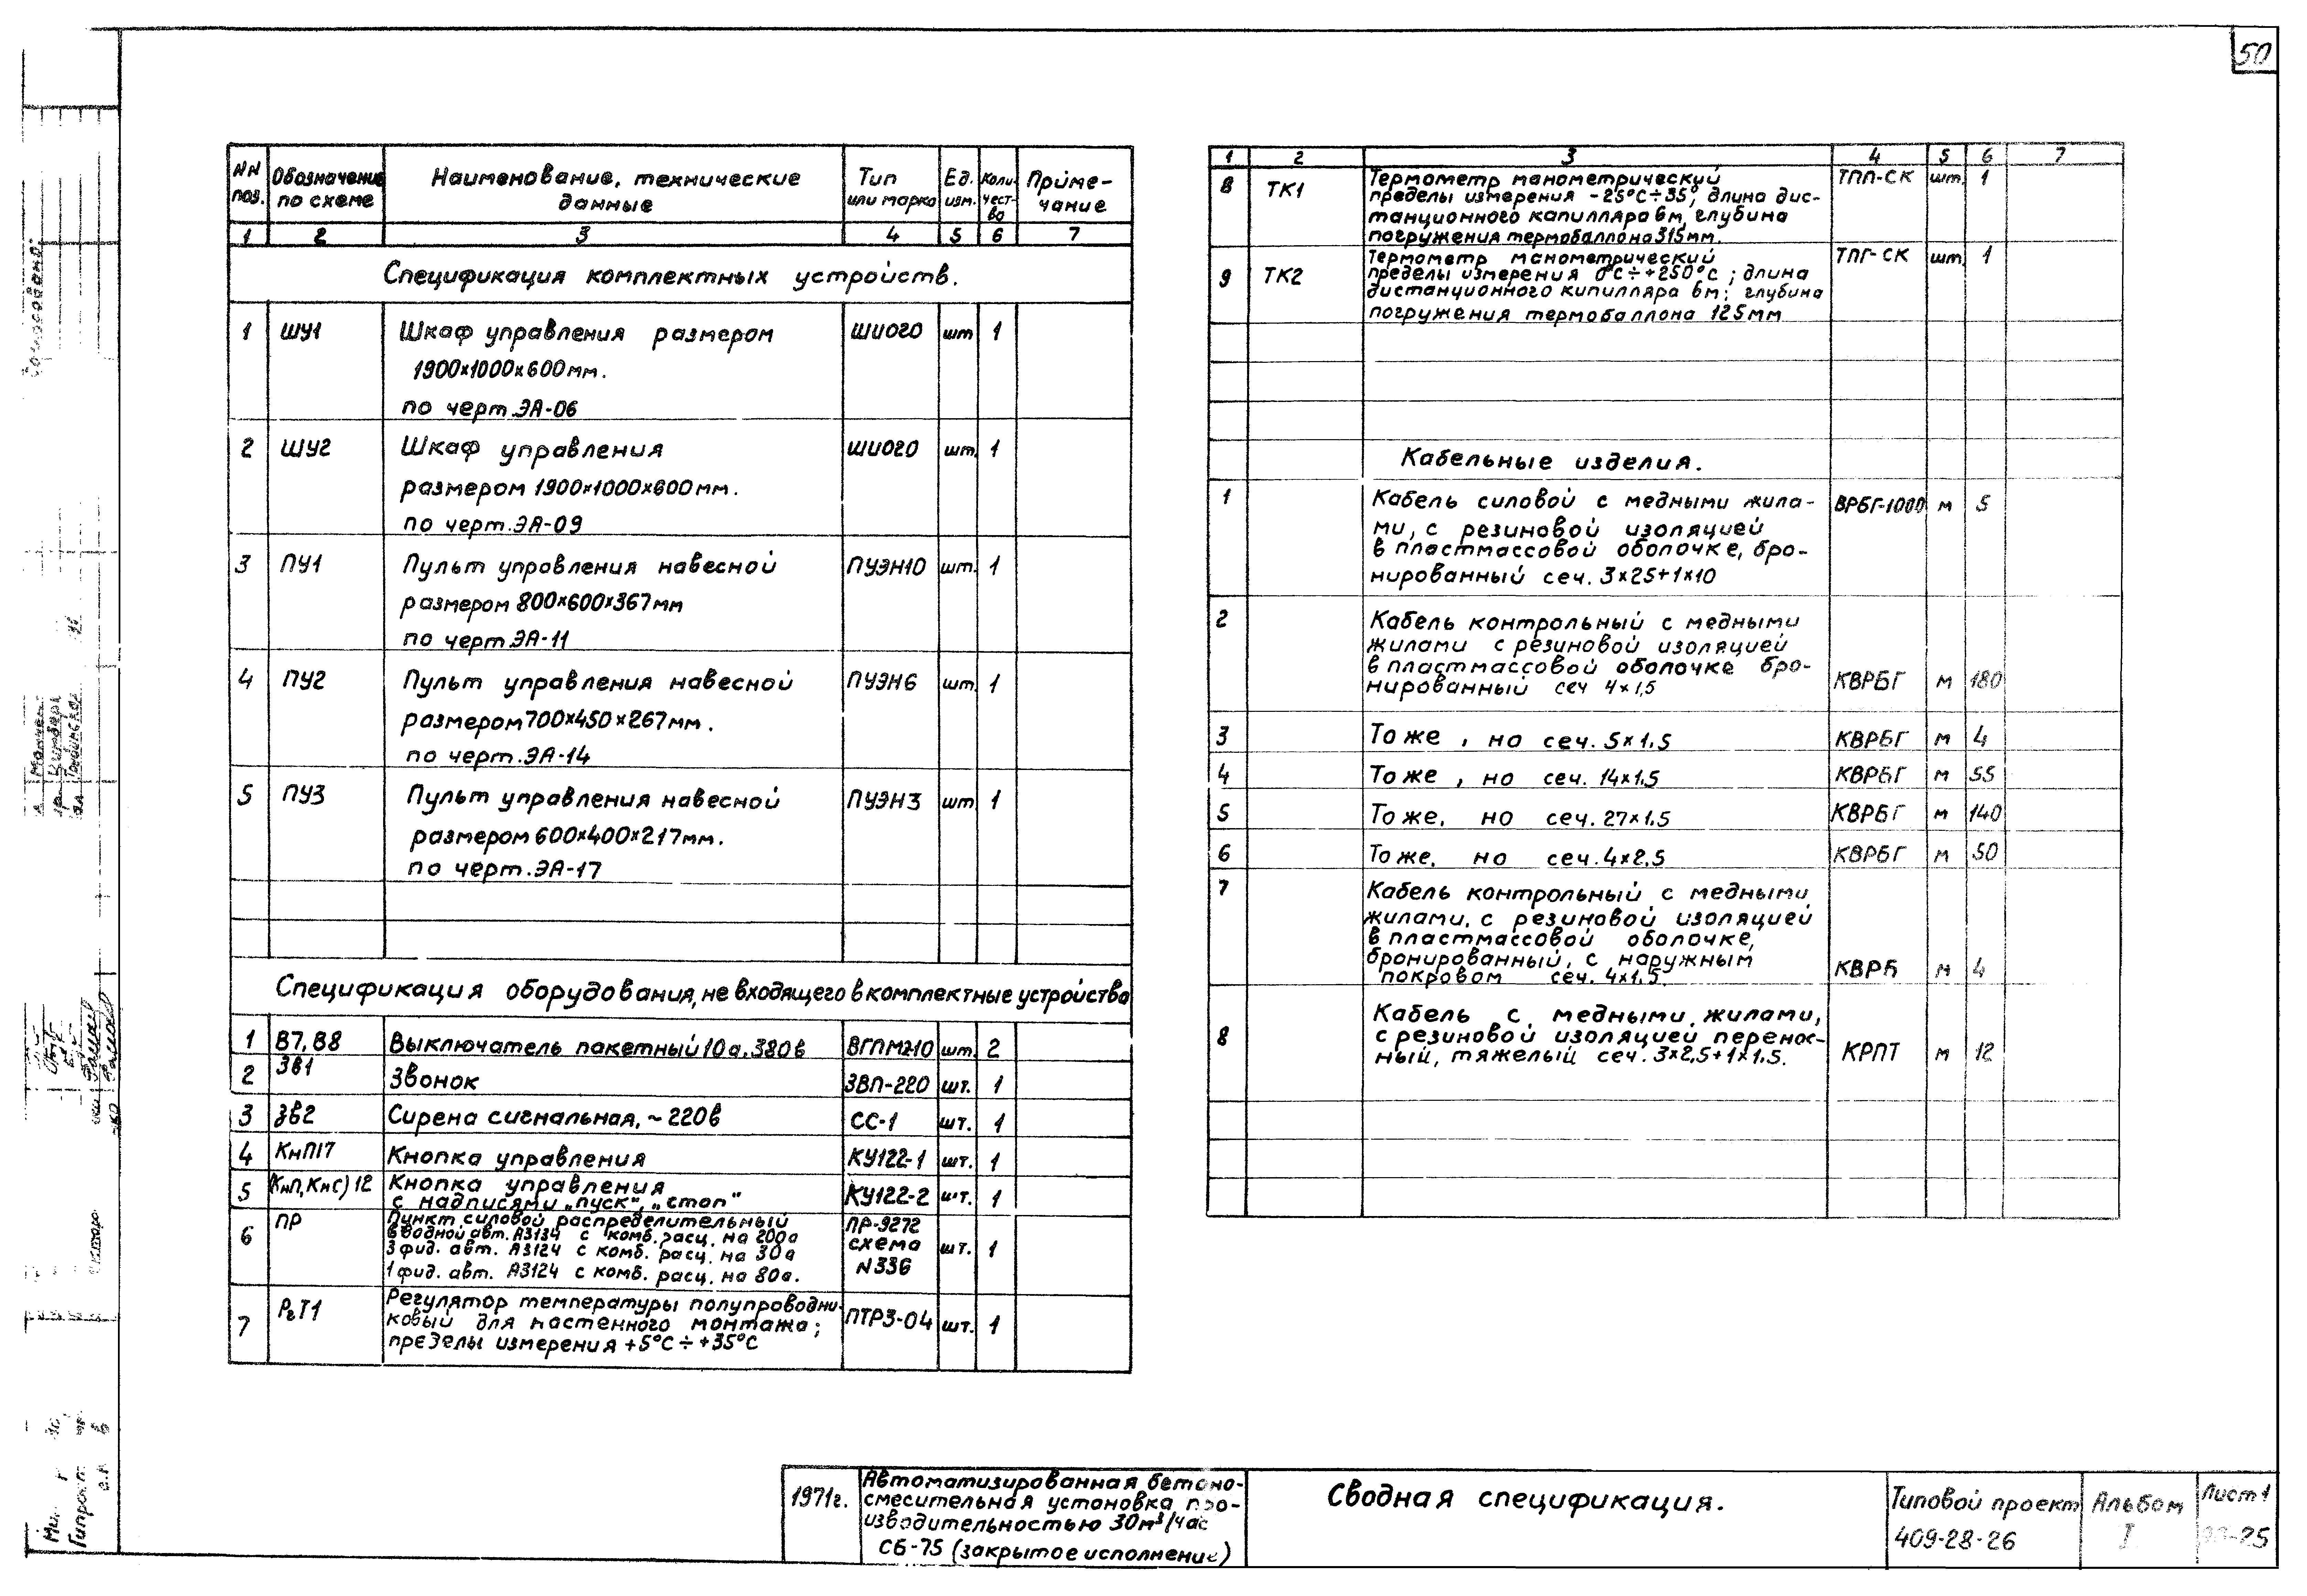 50
NN поз. Обозначение по схеме Наименование, технические данные Тип или марка Ед. изм. Количество Примечание
1 2 3 4 5 6 7
Спецификация комплектных устройств.
1 ШУ1 Шкаф управления размером ШИОГО шт 1
1900×1000×600мм.
по черт.ЭА-06
2 ШУ2 Шкаф управления ШИОГО шт. 1
размером 1900×1000×600мм.
по черт.ЭА-09
3 ПУ1 Пульт управления навесной ПУЭН10 шт. 1
размером 800×600×367мм
по черт.ЭА-11
4 ПУ2 Пульт управления навесной ПУЭН6 шт. 1
размером 700×450×267мм.
по черт.ЭА-14
5 ПУ3 Пульт управления навесной ПУЭН3 шт. 1
размером 600×400×217мм.
по черт.ЭА-17
Спецификация оборудования, не входящего в комплектные устройства
1 В7, В8 Выключатель пакетный 10а, 380в ВГПМ2-10 шт. 2
2 Зв1 Звонок ЗВП-220 шт. 1
3 Зв2 Сирена сигнальная, ~220в СС-1 шт. 1
4 КнП17 Кнопка управления КУ122-1 шт. 1
5 (КнП, КнС) 12 Кнопка управления КУ122-2 шт. 1
с надписями „пуск", „стоп"
6 ПР Пункт силовой распределительный ПР-9272 схема N336 шт. 1
вводной авт. А3134 с комб. расц. на 200а
3 фид. авт. А3124 с комб. расц. на 30а
1 фид. авт. А3124 с комб. расц. на 80а.
7 РгТ1 Регулятор температуры полупроводни- ПТР3-04 шт. 1
ковый для настенного монтажа;
пределы измерения +5°С÷+35°С
1 2 3 4 5 6 7
8 ТК1 Термометр манометрический ТПП-СК шт. 1
пределы измерения -25°С÷35°, длина дис-
танционного капилляра 6м, глубина
погружения термобаллона 315мм.
9 ТК2 Термометр манометрический ТПГ-СК шт. 1
пределы измерения 0°С÷+250°С; длина
дистанционного кипилляра 6м; глубина
погружения термобаллона 125мм
Кабельные изделия.
1 Кабель силовой с медными жила- ВРБГ-1000 м 5
ми, с резиновой изоляцией
в пластмассовой оболочке, бро-
нированный сеч. 3×25+1×10
2 Кабель контрольный с медными
жилами с резиновой изоляцией
в пластмассовой оболочке бро-
нированный сеч 4×1,5 КВРБГ м 180
3 То же, но сеч. 5×1,5 КВРБГ м 4
4 То же, но сеч. 14×1,5 КВРБГ м 55
5 То же, но сеч. 27×1,5 КВРБГ м 140
6 То же, но сеч. 4×2,5 КВРБГ м 50
7 Кабель контрольный с медными
жилами, с резиновой изоляцией
в пластмассовой оболочке,
бронированный, с наружным
покровом сеч. 4×1,5 КВРБ м 4
8 Кабель с медными жилами,
с резиновой изоляцией перенос-
ный, тяжелый сеч. 3×2,5+1×1,5. КРПТ м 12
1971г.
Автоматизированная бетоно-
смесительная установка про-
изводительностью 30м³/час
СБ-75 (закрытое исполнение)
Сводная спецификация.
Типовой проект
409-28-26
Альбом
I
Лист 1
-25